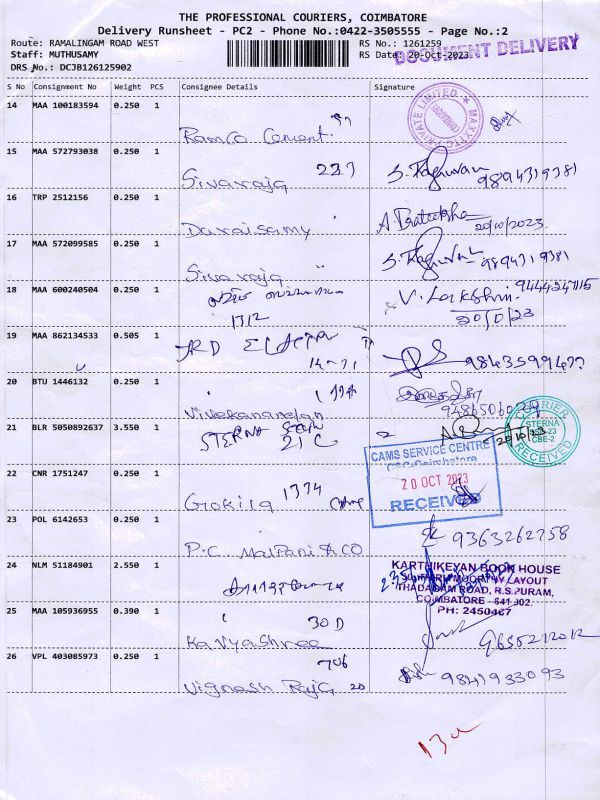 THE PROFESSIONAL COURIERS, COIMBATORE
Delivery Runsheet - PC2 - Phone No.:0422-3505555 - Page No.:2
Route: RAMALINGAM ROAD WEST
Staff: MUTHUSAMY
DRS No.: DCJB126125902
RS No.: 1261259
RS Date: 20-Oct-2023
DOCUMENT DELIVERY
S No Consignment No Weight PCS Consignee Details Signature
14 MAA 100183594 0.250 1
Ramco Cement
PRIVATE LIMITED
15 MAA 572793038 0.250 1
223
Sivaraja
S. Raghuvan 9894319381
16 TRP 2512156 0.250 1
Doraisamy
20/10/2023
17 MAA 572099585 0.250 1
Sivaraja
S. Raghuvan 9894319381
18 MAA 600240504 0.250 1
1312
V. Lakshmi 9444247115
20/10/23
19 MAA 862134533 0.505 1
JRD
14-71
20 BTU 1446132 0.250 1
Vivekanandan
21 BLR 5050892637 3.550 1
STERNA
21 C
20/10/23
COURIER
STERNA
CBE-2
RECEIVED
CAMS SERVICE CENTRE
CSC-Coimbatore
20 OCT 2023
RECEIVED
22 CNR 1751247 0.250 1
1374
Gokila
23 POL 6142653 0.250 1
P.C. Malpani & CO
9363262758
24 NLM 51184901 2.550 1
KARTHIKEYAN BOOK HOUSE
LAYOUT
THADAGAM ROAD, R.S.PURAM,
COIMBATORE - 641 002.
PH: 2450467
25 MAA 105936955 0.390 1
30D
Kavyashree
9655212012
26 VPL 403085973 0.250 1
706
Vignesh Raj G 20
9841933093
13